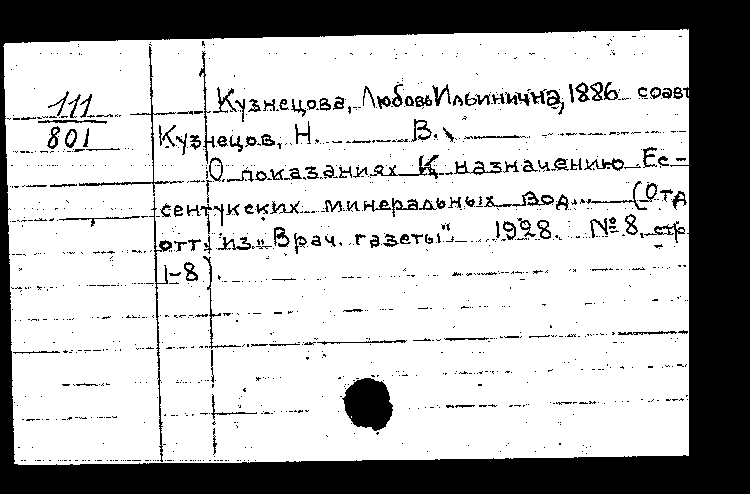 111
801
Кузнецова, Любовь Ильинична, 1886 соавт
Кузнецов, Н. В.
О показаниях к назначению Ес-
сентукских минеральных вод... (Отд
отт. из „Врач. газеты". 1928. № 8, стр
1-8).